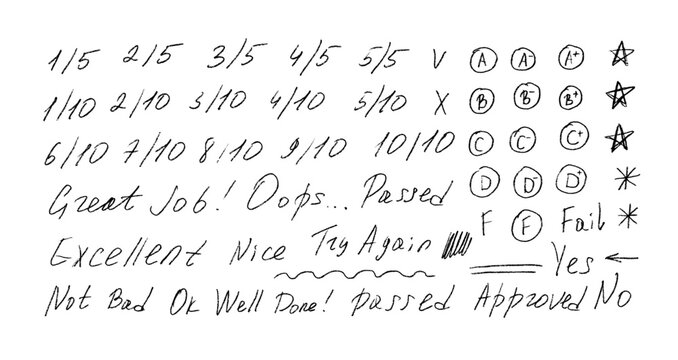 1/5 2/5 3/5 4/5 5/5 V A A- A+
1/10 2/10 3/10 4/10 5/10 X B B- B+
6/10 7/10 8/10 9/10 10/10 C C- C+
Great Job! Oops... Passed D D- D+
F F Fail
Excellent Nice Try Again Yes
Not Bad Ok Well Done! passed Approved No